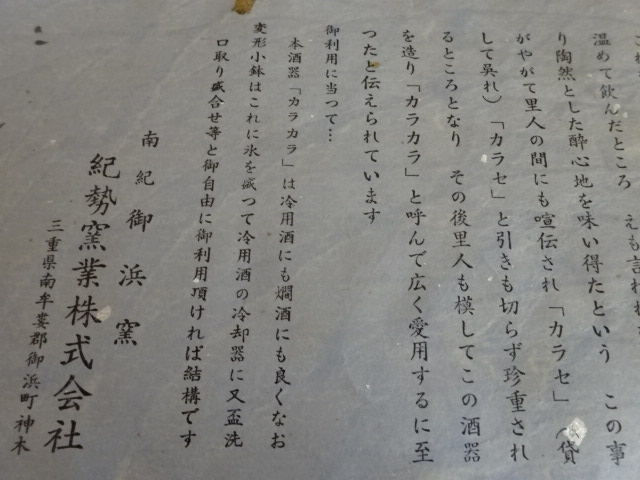 温めて飲んだところ えも言われ
り陶然とした酔心地を味い得たという この事
がやがて里人の間にも喧伝され「カラセ」（貸
して呉れ）「カラセ」と引きも切らず珍重され
るところとなり その後里人も模してこの酒器
を造り「カラカラ」と呼んで広く愛用するに至
つたと伝えられています
御利用に当つて…
本酒器「カラカラ」は冷用酒にも燗酒にも良くなお
変形小鉢はこれに氷を盛つて冷用酒の冷却器に又盃洗
口取り盛合せ等と御自由に御利用頂ければ結構です
南紀御浜窯
紀勢窯業株式会社
三重県南牟婁郡御浜町神木